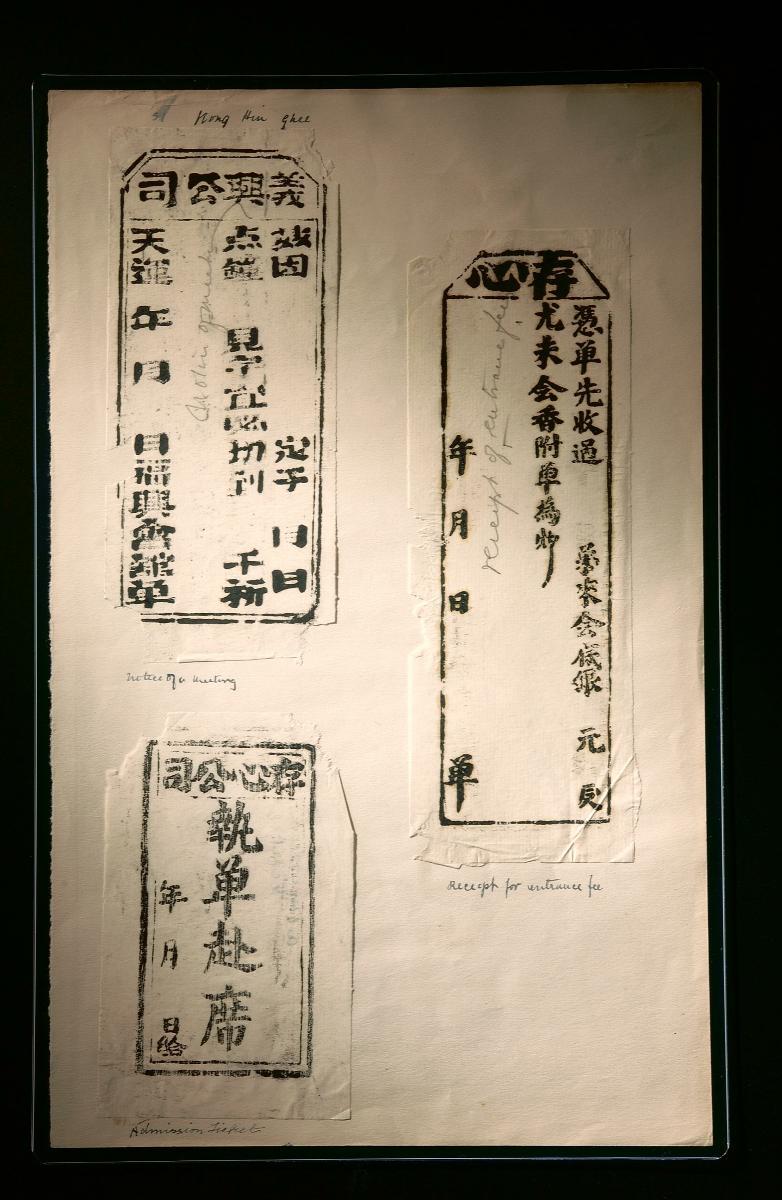 Hong Hin Ghee
義興公司
茲因 定于 月 日
点鐘 見字宜必切到 千祈
天運 年 月 日福興會舘单
Notice of meeting
Notice of a meeting
存心公司
執单赴席
年 月 日給
Admission Ticket
存心
憑单先收過 來会 銀 元
尤未会香附单為
年 月 日 单
receipt of entrance fee
Receipt for entrance fee